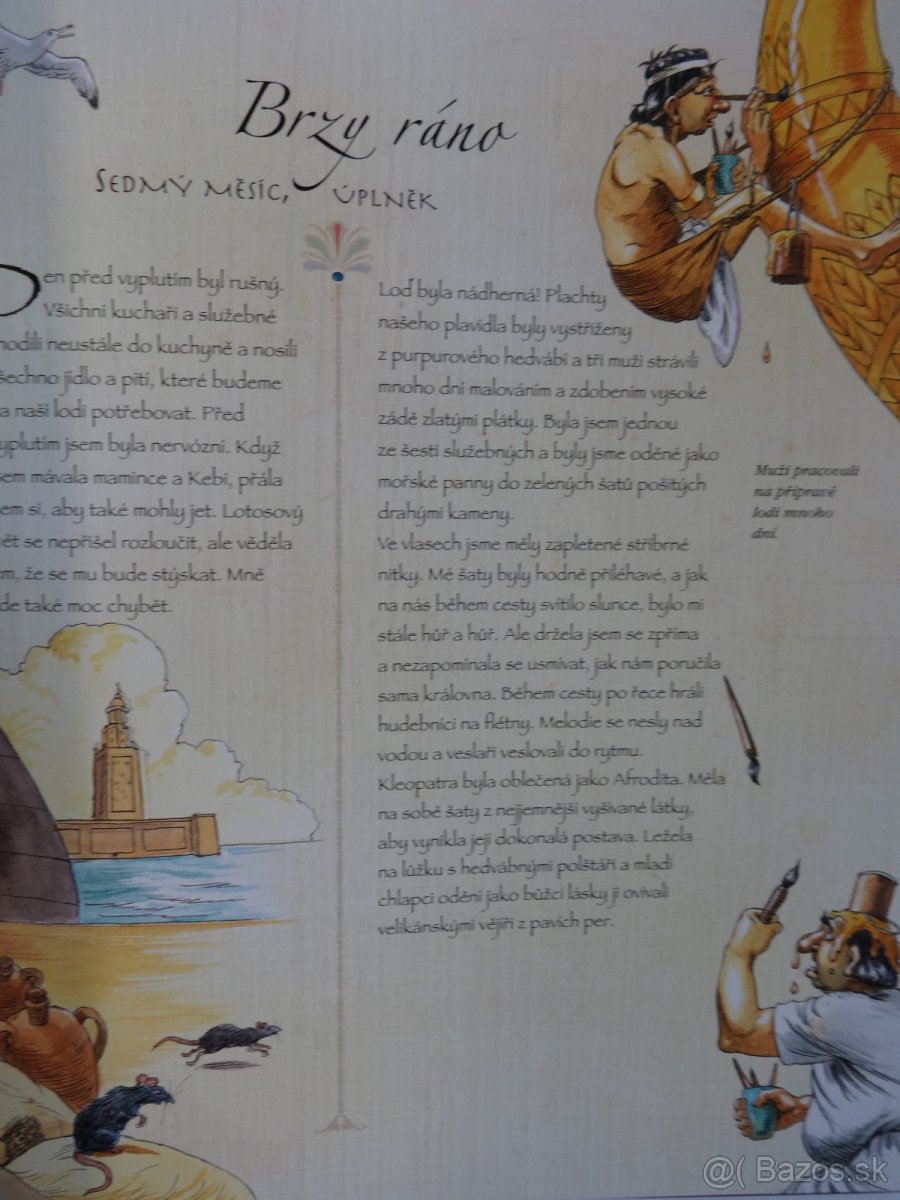 Brzy ráno
SEDMÝ MĚSÍC, ÚPLNĚK
Den před vyplutím byl rušný.
Všichni kuchaři a služebné
hodili neustále do kuchyně a nosili
šechno jídlo a pití, které budeme
a naší lodi potřebovat. Před
yplutím jsem byla nervózní. Když
sem mávala mamince a Kebi, přála
sem si, aby také mohly jet. Lotosový
ět se nepřišel rozloučit, ale věděla
em, že se mu bude stýskat. Mně
de také moc chybět.
Loď byla nádherná! Plachty
našeho plavidla byly vystřiženy
z purpurového hedvábí a tři muži strávili
mnoho dní malováním a zdobením vysoké
zádě zlatými plátky. Byla jsem jednou
ze šesti služebných a byly jsme oděné jako
mořské panny do zelených šatů pošitých
drahými kameny.
Ve vlasech jsme měly zapletené stříbrné
nitky. Mé šaty byly hodně přiléhavé, a jak
na nás během cesty svítilo slunce, bylo mi
stále hůř a hůř. Ale držela jsem se zpříma
a nezapomínala se usmívat, jak nám poručila
sama královna. Během cesty po řece hráli
hudebníci na flétny. Melodie se nesly nad
vodou a veslaři veslovali do rytmu.
Kleopatra byla oblečená jako Afrodita. Měla
na sobě šaty z nejjemnější vyšívané látky,
aby vynikla její dokonalá postava. Ležela
na lůžku s hedvábnými polštáři a mladí
chlapci odění jako bůžci lásky ji ovívali
velikánskými vějíři z pavích per.
Muži pracovali
na přípravě
lodi mnoho
dní.
@( Bazos.sk